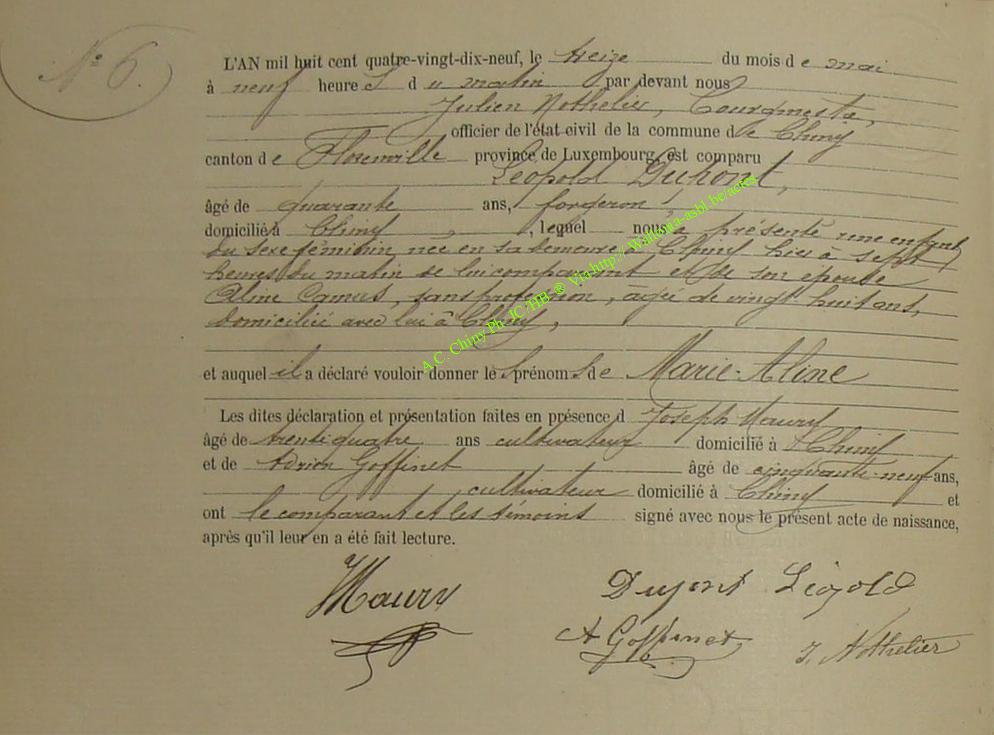 N° 6.
L'AN mil huit cent quatre-vingt-dix-neuf, le treize du mois de mai
à neuf heures du matin par devant nous
Julien Nothelier, bourgmestre,
officier de l'état civil de la commune de Chiny
canton de Florenville province de Luxembourg, est comparu
Léopold Dupont,
âgé de quarante ans, forgeron,
domicilié à Chiny, lequel nous a présenté une enfant
du sexe féminin, née en sa demeure à Chiny hier à sept
heures du matin de lui comparant et de son épouse
Aline Camus, sans profession, âgée de vingt huit ans,
domiciliée avec lui à Chiny,
et auquel il a déclaré vouloir donner les prénoms de Marie-Aline
Les dites déclaration et présentation faites en présence d Joseph Maury
âgé de trente quatre ans cultivateur domicilié à Chiny
et de Adrien Goffinet âgé de cinquante-neuf ans,
cultivateur domicilié à Chiny et
ont le comparant et les témoins signé avec nous le présent acte de naissance,
après qu'il leur en a été fait lecture.
Maury Dupont Léopold
A Goffinet J. Nothelier
A.C. Chiny Ph. JC/HB ® Via:http://Wallonia-asbl.be/actes